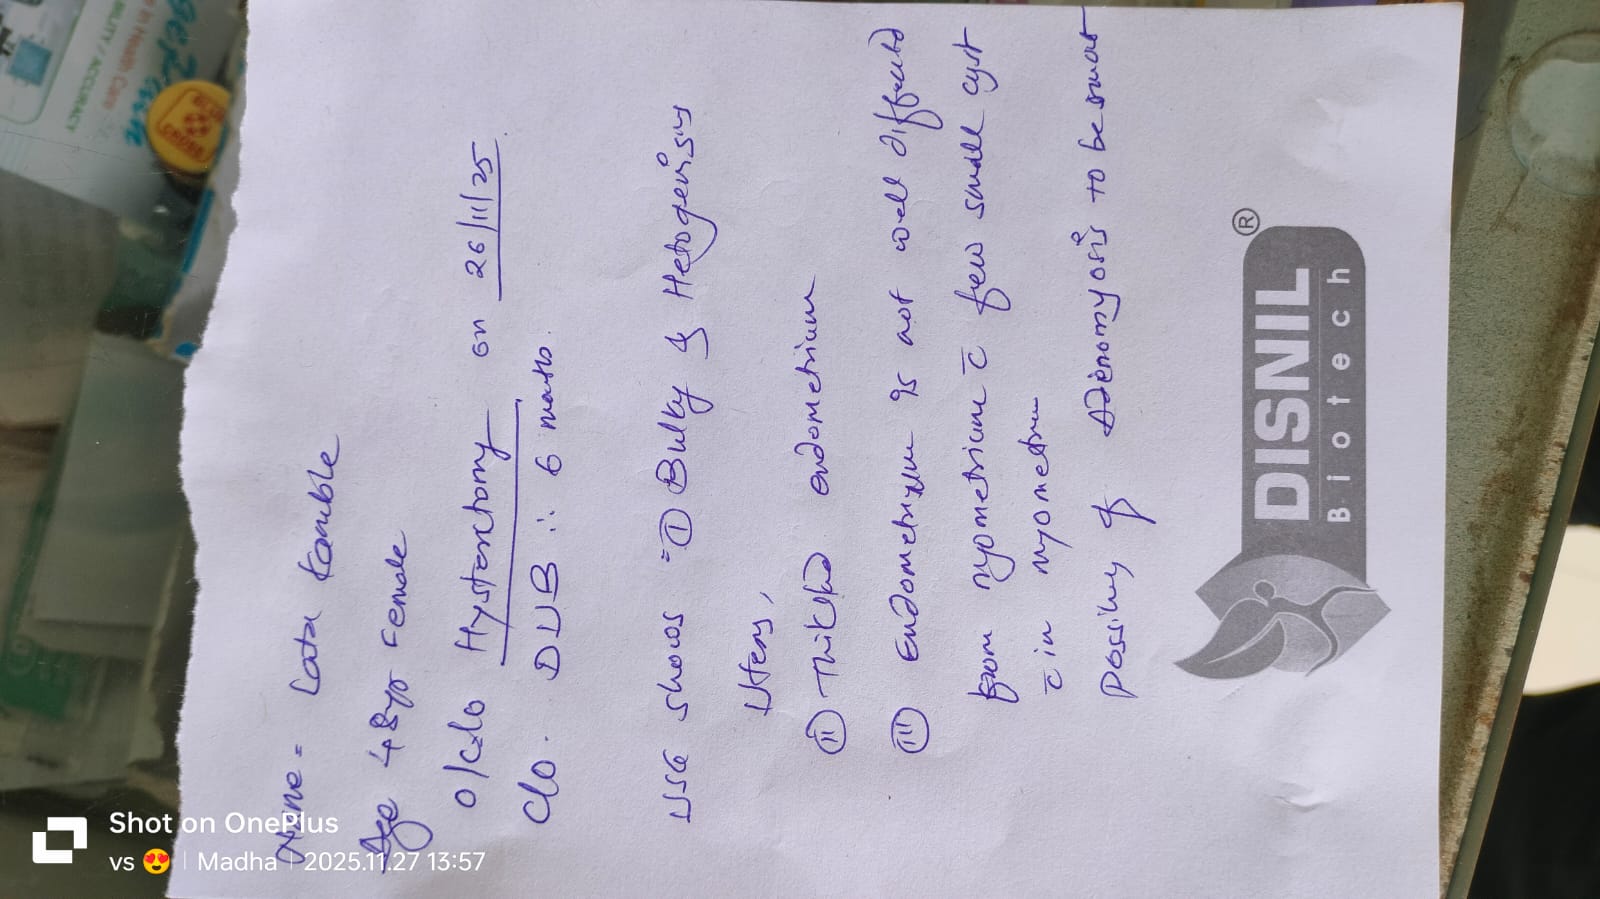 Name = Lata Kamble
Age 48yr Female
O/K/c/o Hysterectomy on 26/11/25.
C/o. DUB ∴ 6 months.
USG shows = ① Bulky & Hetogenisus
Uterus,
ⅱ Thickned endometrium
ⅲ Endometrium is not well diffrented
from myometrium c̄ few small cyst
c̄ in myometrium
Possibility of Adenomyosis to be
DISNIL®
Biotech
in Health Care
BILITY / ACCURACY
Shot on OnePlus
vs 😍 | Madha | 2025.11.27 13:57